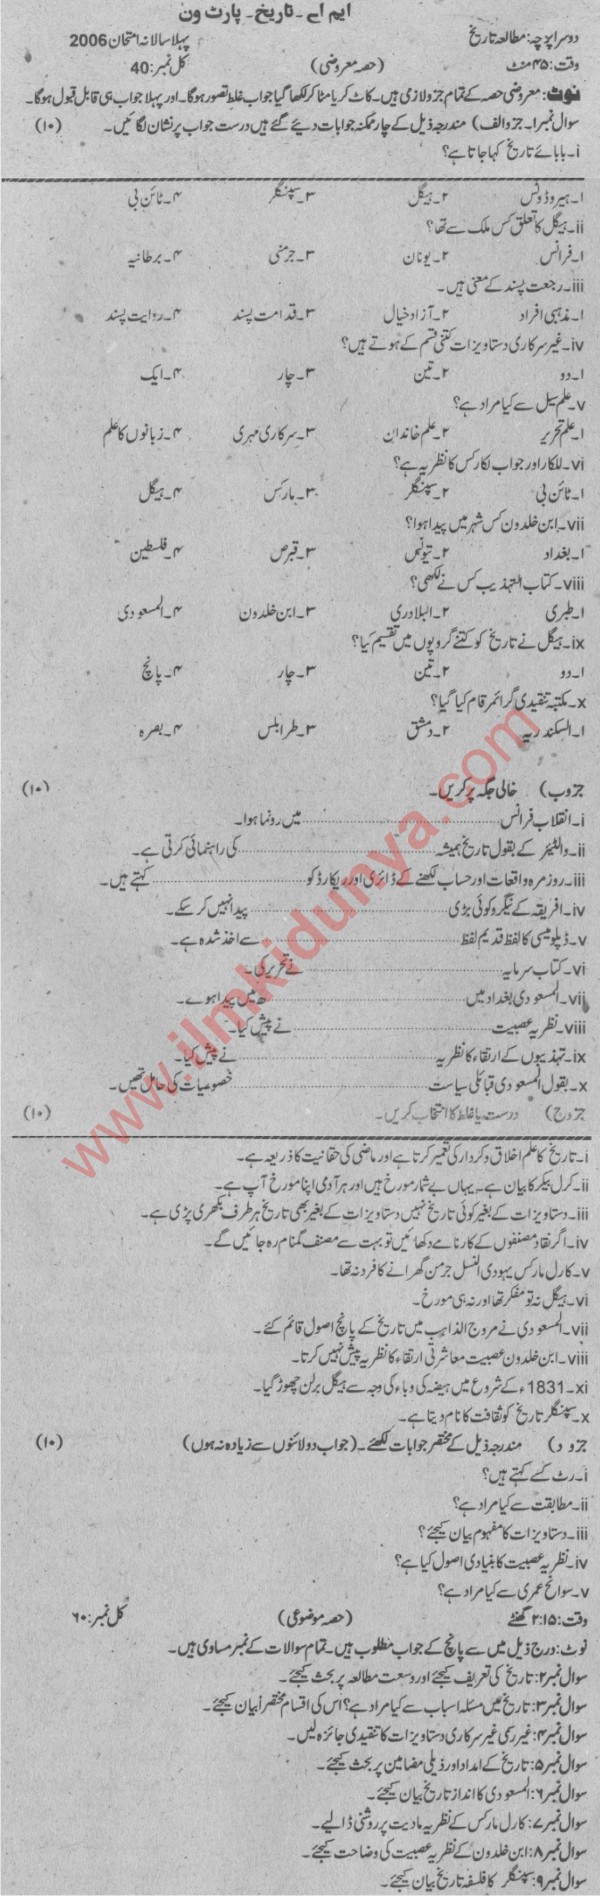 ایم اے۔ تاریخ۔ پارٹ ون
دوسرا پرچہ: مطالعہ تاریخ پہلا سالانہ امتحان 2006
وقت: ۴۵ منٹ (حصہ معروضی) کل نمبر: 40
نوٹ: معروضی حصہ کے تمام جزو لازمی ہیں۔ کاٹ کر یا مٹا کر لکھا گیا جواب غلط تصور ہوگا۔ اور پہلا جواب ہی قابل قبول ہوگا۔
سوال نمبر۱۔ جزو الف) مندرجہ ذیل کے چار ممکنہ جوابات دیئے گئے ہیں درست جواب پر نشان لگائیں۔ (۱۰)
i۔ بابائے تاریخ کہا جاتا ہے؟
۱۔ ہیروڈوٹس ۲۔ ہیگل ۳۔ سپنگلر ۴۔ ٹائن بی
ii۔ ہیگل کا تعلق کس ملک سے تھا؟
۱۔ فرانس ۲۔ یونان ۳۔ جرمنی ۴۔ برطانیہ
iii۔ رجعت پسند کے معنی ہیں۔
۱۔ مذہبی افراد ۲۔ آزاد خیال ۳۔ قدامت پسند ۴۔ روایت پسند
iv۔ غیر سرکاری دستاویزات کتنی قسم کے ہوتے ہیں؟
۱۔ دو ۲۔ تین ۳۔ چار ۴۔ ایک
v۔ علم سیل سے کیا مراد ہے؟
۱۔ علم تحریر ۲۔ علم خاندان ۳۔ سرکاری مہری ۴۔ زبانوں کا علم
vi۔ للکار اور جواب للکار کس کا نظریہ ہے؟
۱۔ ٹائن بی ۲۔ سپنگلر ۳۔ مارکس ۴۔ ہیگل
vii۔ ابن خلدون کس شہر میں پیدا ہوا؟
۱۔ بغداد ۲۔ تیونس ۳۔ قبرص ۴۔ فلسطین
viii۔ کتاب التہذیب کس نے لکھی؟
۱۔ طبری ۲۔ البلادری ۳۔ ابن خلدون ۴۔ المسعودی
ix۔ ہیگل نے تاریخ کو کتنے گروپوں میں تقسیم کیا؟
۱۔ دو ۲۔ تین ۳۔ چار ۴۔ پانچ
x۔ مکتبہ تنقیدی گرائمر قام کیا گیا؟
۱۔ السکندریہ ۲۔ دمشق ۳۔ طرابلس ۴۔ بصرہ
جزو ب) خالی جگہ پر کریں۔ (۱۰)
i۔ انقلاب فرانس ........ میں رونما ہوا۔
ii۔ والٹیئر کے بقول تاریخ ہمیشہ ........ کی راہنمائی کرتی ہے۔
iii۔ روزمرہ واقعات اور حساب لکھنے کے ڈائری اور ریکارڈ کو ........ کہتے ہیں۔
iv۔ افریقہ کے نیگرو کوئی بڑی ........ پیدا نہیں کر سکے۔
v۔ ڈپلومیسی کا لفظ قدیم لفظ ........ سے اخذ شدہ ہے۔
vi۔ کتاب سرمایہ ........ نے تحریر کی۔
vii۔ المسعودی بغداد میں ........ ھ میں پیدا ہوے۔
viii۔ نظریہ عصبیت ........ نے پیش کیا۔
ix۔ تہذیبوں کے ارتقاء کا نظریہ ........ نے پیش کیا۔
x۔ بقول المسعودی قبائلی سیاست ........ خصوصیات کی حامل تھیں۔
جزو ج) درست یا غلط کا انتخاب کریں۔ (۱۰)
i۔ تاریخ کا علم اخلاق و کردار کی تعمیر کرتا ہے اور ماضی کی حقانیت کا ذریعہ ہے۔
ii۔ کرل بیکر کا بیان ہے۔ یہاں بے شمار مورخ ہیں اور ہر آدمی اپنا مورخ آپ ہے۔
iii۔ دستاویزات کے بغیر کوئی تاریخ نہیں دستاویزات کے بغیر بھی تاریخ ہر طرف بکھری پڑی ہے۔
iv۔ اگر نقاد مصنفوں کے کارنامے دکھائیں تو بہت سے مصنف گمنام رہ جائیں گے۔
v۔ کارل مارکس یہودی النسل جرمن گھرانے کا فرد نہ تھا۔
vi۔ ہیگل نہ تو مفکر تھا اور نہ ہی مورخ۔
vii۔ المسعودی نے مروج الذاہب میں تاریخ کے پانچ اصول قائم کئے۔
viii۔ ابن خلدون عصبیت معاشرتی ارتقاء کا نظریہ پیش نہیں کرتا۔
xi۔ 1831ء کے شروع میں ہیضہ کی وباء کی وجہ سے ہیگل برلن چھوڑ گیا۔
x۔ سپنگلر تاریخ کو ثقافت کا نام دیتا ہے۔
جزو د) مندرجہ ذیل کے مختصر جوابات لکھئے۔ (جواب دو لائنوں سے زیادہ نہ ہوں) (۱۰)
i۔ رٹ کسے کہتے ہیں؟
ii۔ مطابقت سے کیا مراد ہے؟
iii۔ دستاویزات کا مفہوم بیان کیجئے؟
iv۔ نظریہ عصبیت کا بنیادی اصول کیا ہے؟
v۔ سوانح عمری سے کیا مراد ہے؟
وقت: ۲:۱۵ گھنٹے (حصہ موضوعی) کل نمبر: ۶۰
نوٹ: درج ذیل میں سے پانچ کے جواب مطلوب ہیں۔ تمام سوالات کے نمبر مساوی ہیں۔
سوال نمبر ۲: تاریخ کی تعریف کیجئے اور وسعت مطالعہ پر بحث کیجئے۔
سوال نمبر ۳: تاریخ میں مسئلہ اسباب سے کیا مراد ہے؟ اس کی اقسام مختصراً بیان کیجئے۔
سوال نمبر ۴: غیر رسمی غیر سرکاری دستاویزات کا تنقیدی جائزہ لیں۔
سوال نمبر ۵: تاریخ کے امداد اور ذیلی مضامین پر بحث کیجئے۔
سوال نمبر ۶: المسعودی کا انداز تاریخ بیان کیجئے۔
سوال نمبر ۷: کارل مارکس کے نظریہ مادیت پر روشنی ڈالیے۔
سوال نمبر ۸: ابن خلدون کے نظریہ عصبیت کی وضاحت کیجئے۔
سوال نمبر ۹: سپنگلر کا فلسفہ تاریخ بیان کیجئے۔
www.ilmkidunya.com